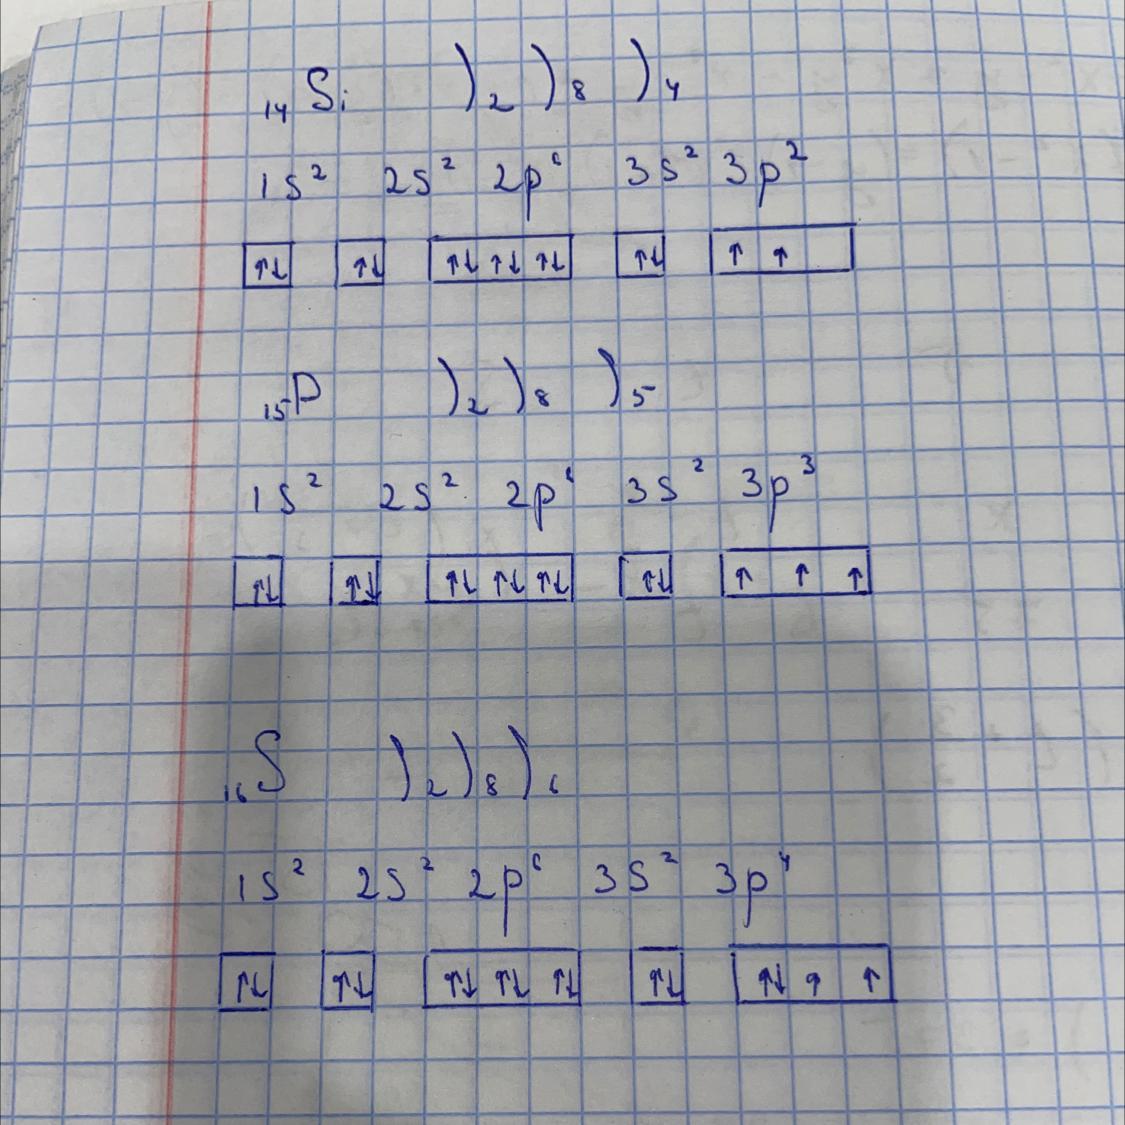 ₁₄Si )₂ )₈ )₄
1s² 2s² 2p⁶ 3s² 3p²
↑↓ ↑↓ ↑↓ ↑↓ ↑↓ ↑↓ ↑ ↑
₁₅P )₂ )₈ )₅
1s² 2s² 2p⁶ 3s² 3p³
↑↓ ↑↓ ↑↓ ↑↓ ↑↓ ↑↓ ↑ ↑ ↑
₁₆S )₂ )₈ )₆
1s² 2s² 2p⁶ 3s² 3p⁴
↑↓ ↑↓ ↑↓ ↑↓ ↑↓ ↑↓ ↑↓ ↑ ↑